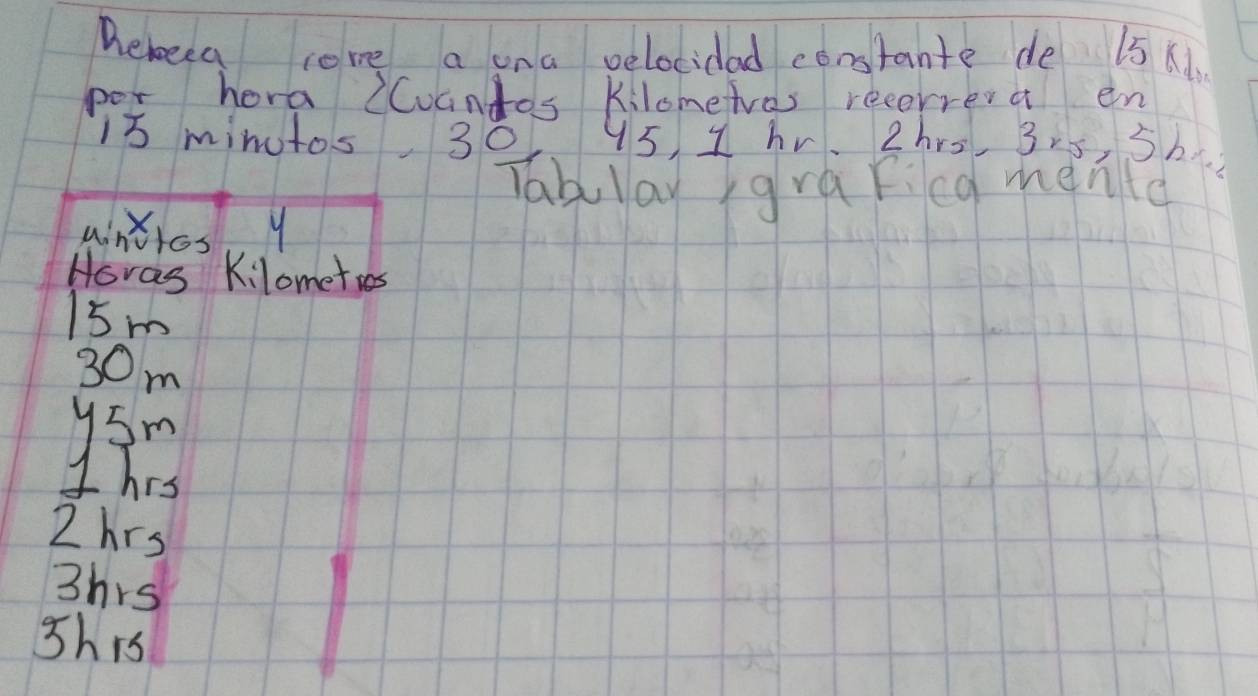 Rebeca corre a una velocidad constante de 15 Klm
por hora ¿Cuantos Kilometros recorrera en
15 minutos, 30, 45, 1 hr, 2 hrs, 3rs, 5 hrs?
Tabular y graficamente
x y
Minutos
Horas Kilometros
15 m
30 m
45 m
1 hrs
2 hrs
3 hrs
5 hrs